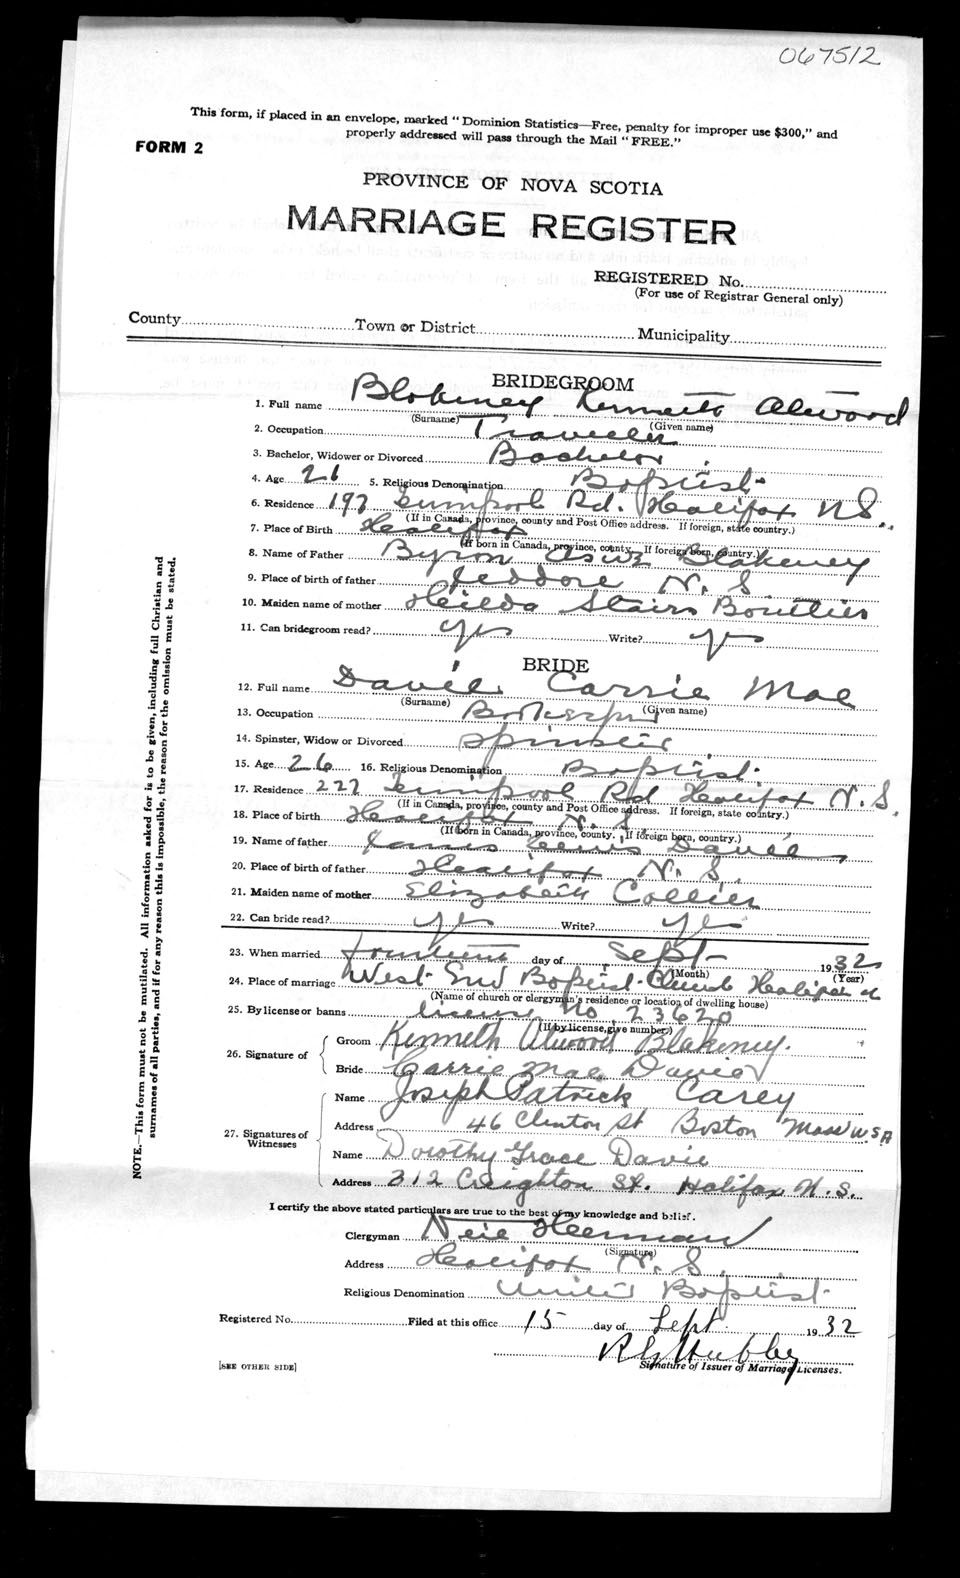 067512
This form, if placed in an envelope, marked "Dominion Statistics—Free, penalty for improper use $300," and
properly addressed will pass through the Mail "FREE."
FORM 2
PROVINCE OF NOVA SCOTIA
MARRIAGE REGISTER
REGISTERED No.
(For use of Registrar General only)
County Town or District Municipality
BRIDEGROOM
1. Full name Blakeney Kenneth Atwood
(Surname) (Given name)
2. Occupation Traveler
3. Bachelor, Widower or Divorced Bachelor
4. Age 26 5. Religious Denomination Baptist
6. Residence 197 Rd. Halifax N.S.
(If in Canada, province, county and Post Office address. If foreign, state country.)
7. Place of Birth Halifax
(If born in Canada, province, county. If foreign born, country.)
8. Name of Father Byron Blakeney
9. Place of birth of father Jeddore N. S
10. Maiden name of mother Hilda Stairs Boutlier
11. Can bridegroom read? yes Write? yes
BRIDE
12. Full name Davie Carrie Mae
(Surname) (Given name)
13. Occupation
14. Spinster, Widow or Divorced Spinster
15. Age 26 16. Religious Denomination Baptist
17. Residence 227 Rd Halifax N. S
(If in Canada, province, county and Post Office address. If foreign, state country.)
18. Place of birth Halifax N. S
(If born in Canada, province, county. If foreign born, country.)
19. Name of father James Lewis Davie
20. Place of birth of father Halifax N. S.
21. Maiden name of mother Elizabeth Collier
22. Can bride read? yes Write? yes
23. When married fourteenth day of Sept 1932
(Month) (Year)
24. Place of marriage West End Baptist Church Halifax
(Name of church or clergyman's residence or location of dwelling house)
25. By license or banns license No 23620
(If by license, give number)
26. Signature of Groom Kenneth Atwood Blakeney.
Bride Carrie Mae Davie
27. Signatures of Witnesses
Name Joseph Patrick Carey
Address 46 Clinton St Boston Mass U.S.A
Name Dorothy Grace Davie
Address 312 Creighton St. Halifax N.S.
I certify the above stated particulars are true to the best of my knowledge and belief.
Clergyman Neil Herman
(Signature)
Address Halifax N. S.
Religious Denomination United Baptist
Registered No. Filed at this office 15 day of Sept 1932
Signature of Issuer of Marriage Licenses.
[SEE OTHER SIDE]
NOTE.—This form must not be mutilated. All information asked for is to be given, including full Christian and
surnames of all parties, and if for any reason this is impossible, the reason for the omission must be stated.